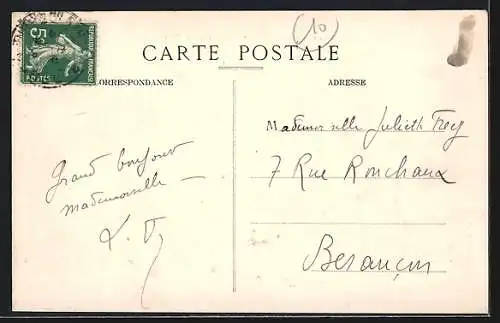 (10)
CARTE POSTALE
CORRESPONDANCE
ADRESSE
REPUBLIQUE FRANÇAISE
5c
POSTES
Mademoiselle Juliette Frey
7 Rue Ronchaux
Besançon
Grand bonjour
mademoiselle —